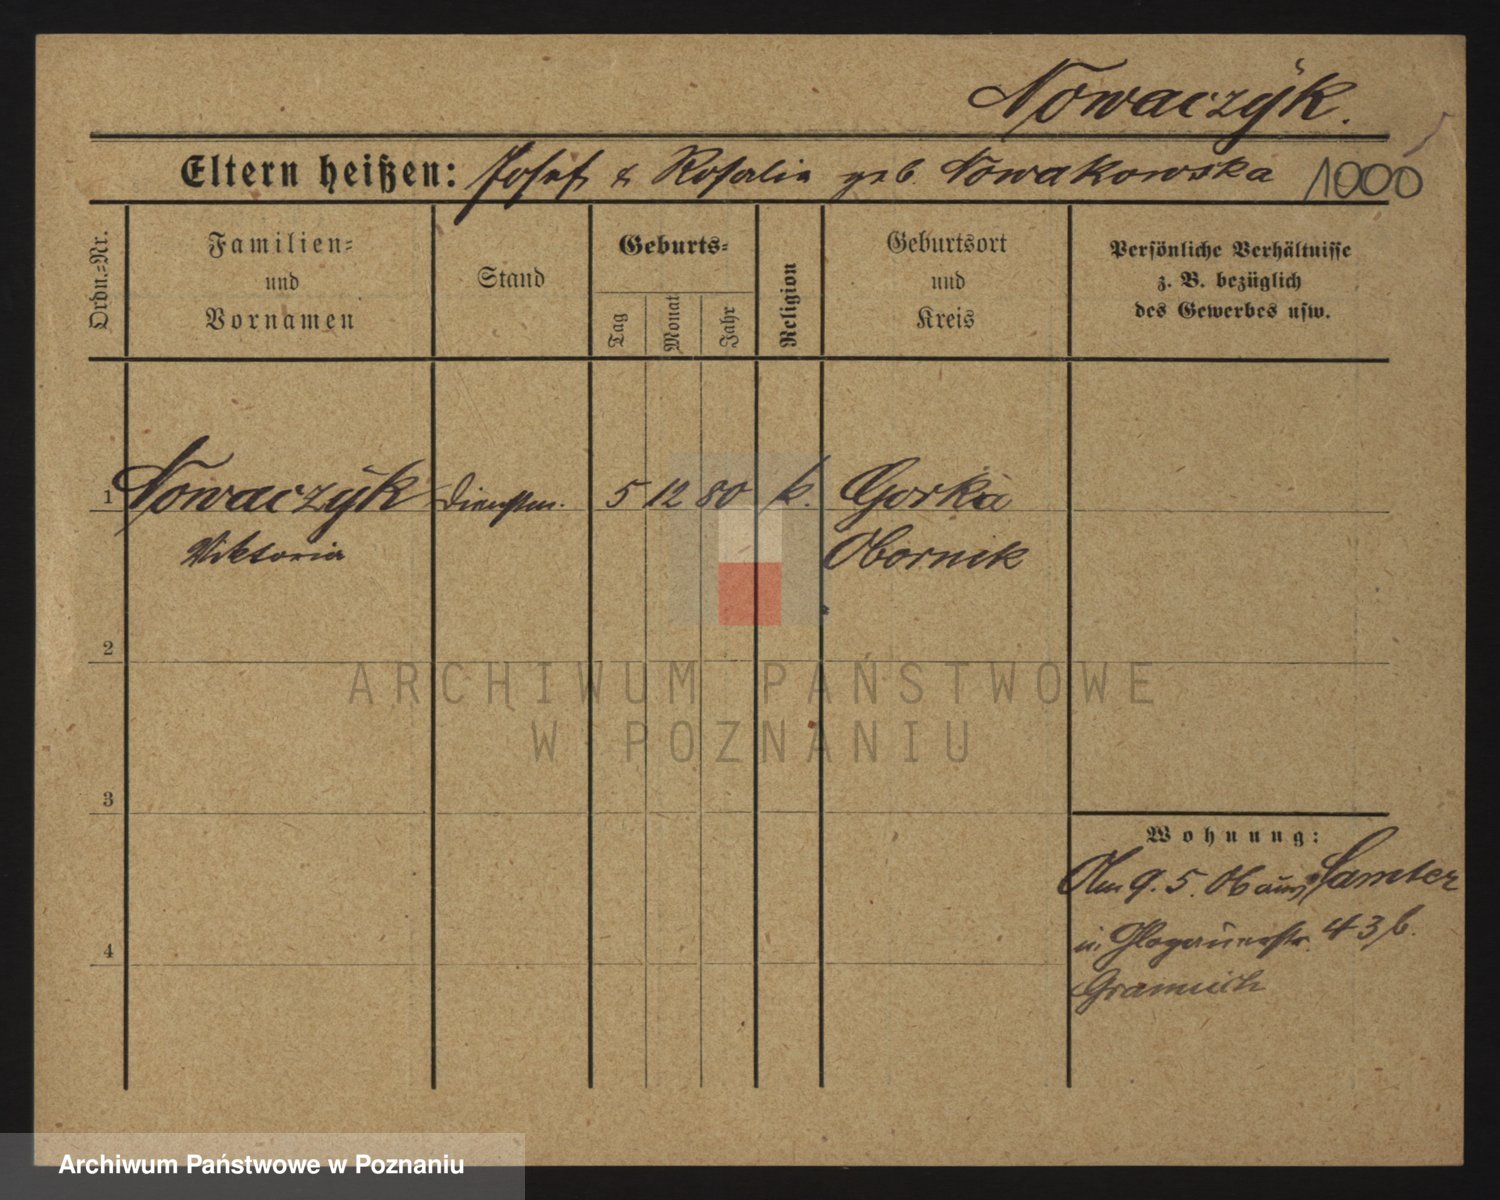 Nowaczÿk.
Eltern heißen: Josef & Rosalie geb. Nowakowska 1000
Ordn.-Nr.
Familien-
und
Vornamen
Stand
Geburts-
Tag
Monat
Jahr
Religion
Geburtsort
und
Kreis
Persönliche Verhältnisse
z. B. bezüglich
des Gewerbes usw.
1 Nowaczÿk Dienstm. 5 12 80 k. Gorka
Viktoria Obornik
2
ARCHIWUM PAŃSTWOWE
W POZNANIU
3
Wohnung:
Am 9. 5. 06 aus Samter
in Glogauerstr. 43 b.
4
Gramsch
Archiwum Państwowe w Poznaniu